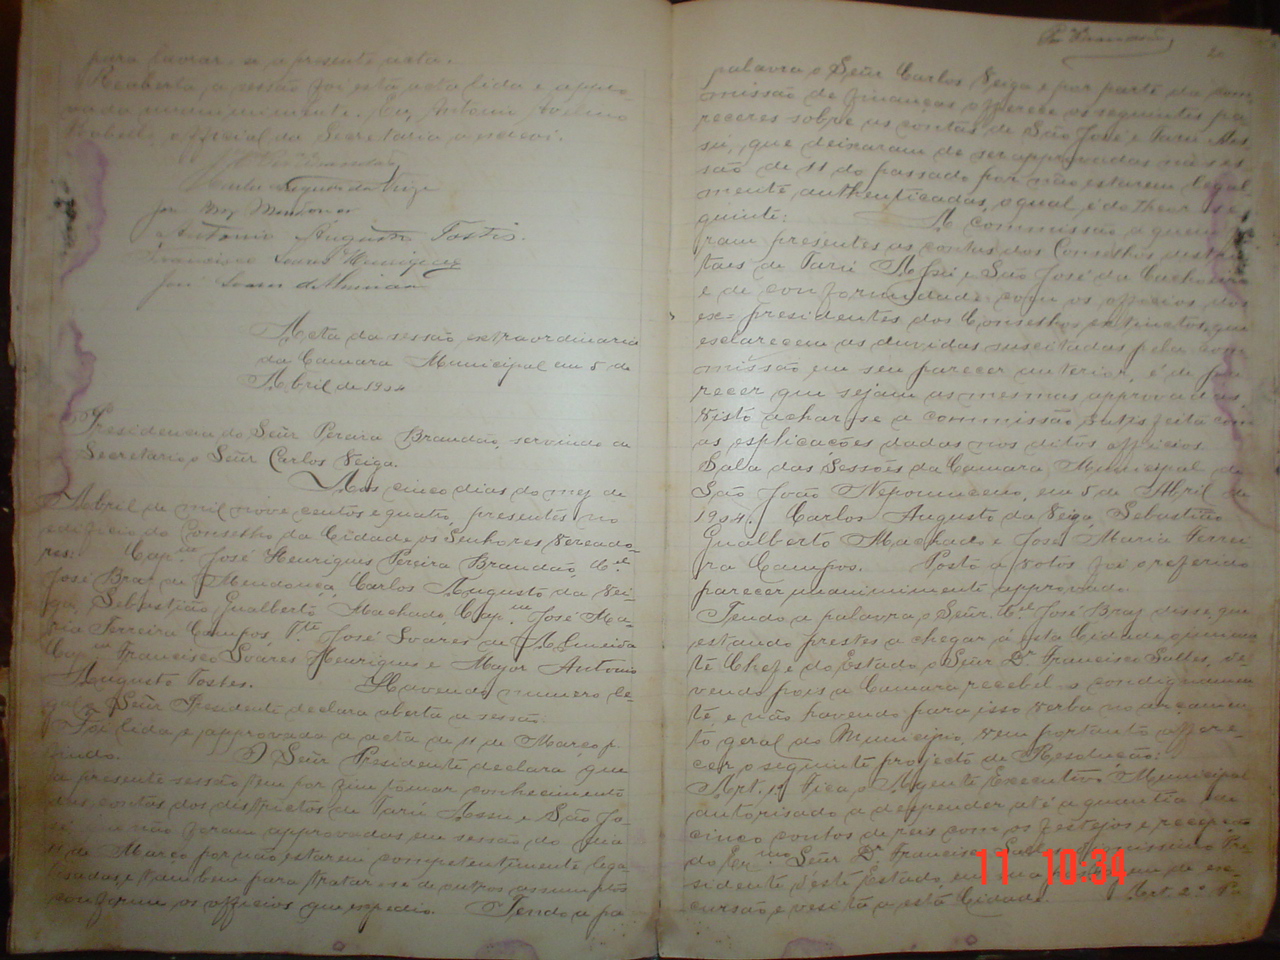 para lavrar-se a presente acta.
Reaberta a sessão foi esta acta lida e appro-
vada unanimemente. Eu, Antonio
official da Secretaria a escrevi.
Carlos Augusto da Veiga
José Braz Mendonça
Antonio Augusto Tostes.
Francisco Soares Henriques
José Soares de Almeida
Acta da sessão extraordinaria
da Camara Municipal em 5 de
Abril de 1904
Presidencia do Señr Pereira Brandão, servindo de
Secretario o Señr Carlos Veiga.
Aos cinco dias do mez de
Abril de mil nove centos e quatro, presentes no
edificio do Conselho da Cidade os Senhores Vereado-
res: Cap.m José Henriques Pereira Brandão, Cel
José Braz de Mendonça, Carlos Augusto da Vei-
ga, Sebastião Gualberto Machado, Cap.m José Ma-
ria Ferreira Campos, Tte José Soares de Almeida
Cap.m Francisco Soares Henriques e Major Antonio
Augusto Tostes. Havendo numero le-
gal o Señr Presidente declara aberta a sessão.
Foi lida e approvada a acta de 11 de Março p.
findo. O Señr Presidente declara que
a presente sessão tem por fim tomar conhecimento
das contas dos districtos de Tarú Assú e São Jo-
sé, que não foram approvadas em sessão do dia
11 de Março por não estarem competentemente lega-
lisadas e tambem para tratar-se de outros assumptos
conforme os officios que expedio. Tendo a pa-
20
palavra o Señr Carlos Veiga e por parte da com-
missão de finanças offerece os seguintes pa-
receres sobre as contas de São José e Tarú As-
sú, que deixaram de ser approvadas na ses-
são de 11 do passado por não estarem legal-
mente authenticadas, o qual é do theor se-
guinte: A commissão a quem fo-
ram presentes as contas dos Conselhos distric-
taes de Tarú Assú e São José da Cachoeira
e de conformidade com os officios dos
ex-presidentes dos Conselhos extinctos, que
esclarecem as duvidas suscitadas pela com-
missão em seu parecer anterior, é de pa-
recer que sejam as mesmas approvadas
visto achar-se a commissão satisfeita com
as esplicações dadas nos ditos officios
Sala das Sessões da Camara Municipal de
São João Nepomuceno, em 5 de Abril de
1904. Carlos Augusto da Veiga, Sebastião
Gualberto Machado e José Maria Ferrei-
ra Campos. Posto a votos foi o referido
parecer unanimimente approvado.
Tendo a palavra o Señr. Cel José Braz disse, que
estando prestes a chegar á esta Cidade o eminen-
te Chefe do Estado o Señr Dr Francisco Salles, de-
vendo pois a Camara recebel-o condignamen-
te, e não havendo para isso verba no orçamen-
to geral do Municipio, vem portanto offere-
cer o seguinte projecto de Resolução:
Art. 1º Fica o Agente Executivo Municipal
autorisado a despender até a quantia de
cinco contos de reis com os festejos e recepção
do Exmo Señr Dr Francisco Salles Dignissimo Pre-
sidente d'este Estado em sua de ex-
cursão e visita a esta Cidade. Art. 2º
11 10:34